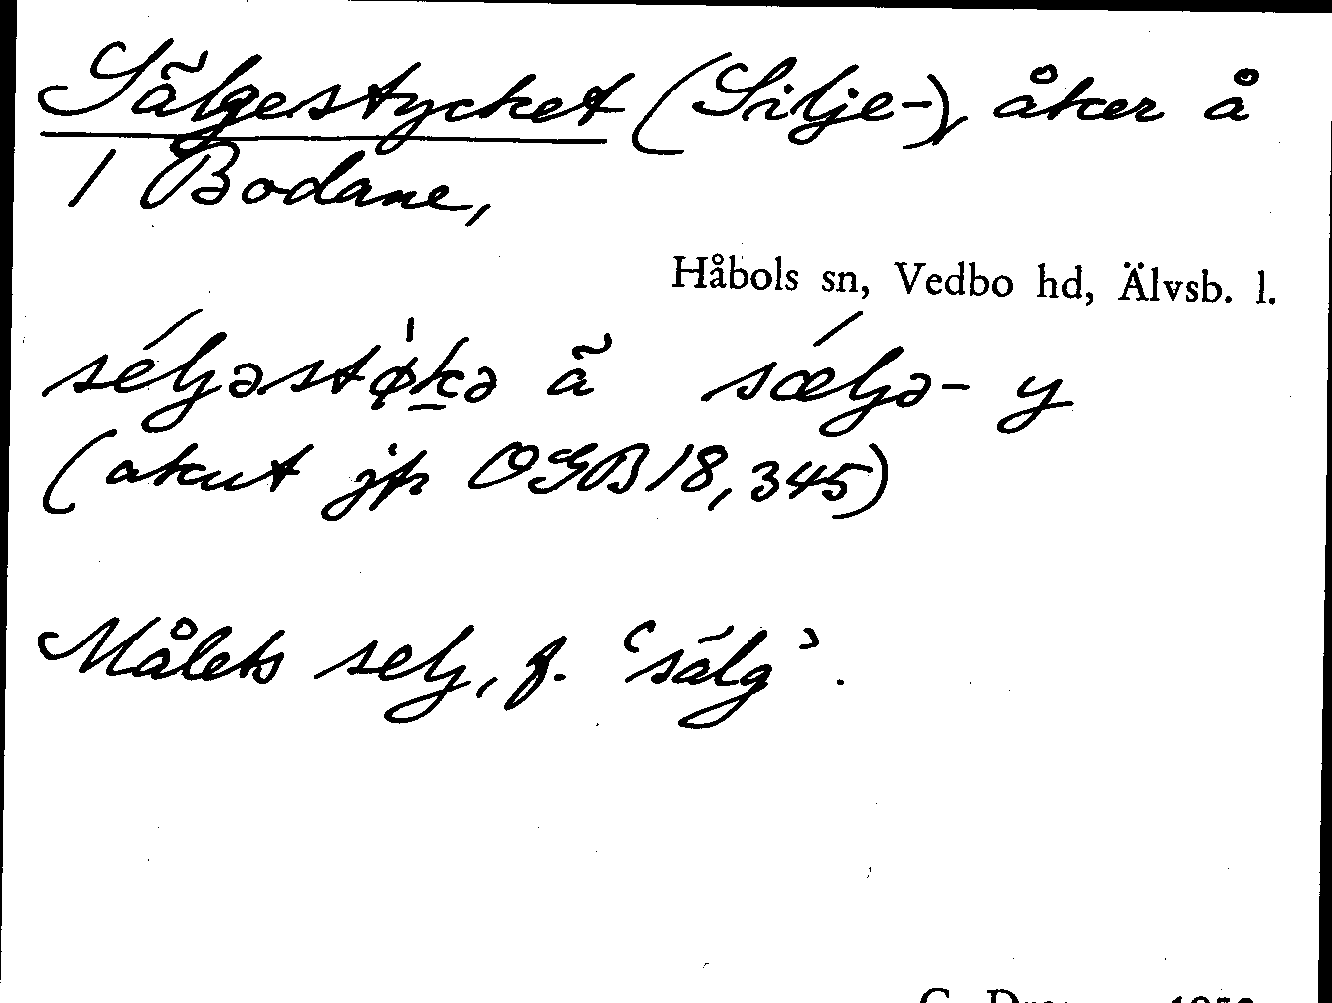 Sälgestycket (Silje-), åker å
1 Bodane,
Håbols sn, Vedbo hd, Älvsb. l.
séljəstø̀k̲ə ä sǽljə- y
(akut jfr OGB 18, 345)
Målets selj, f. ‘sälg’.